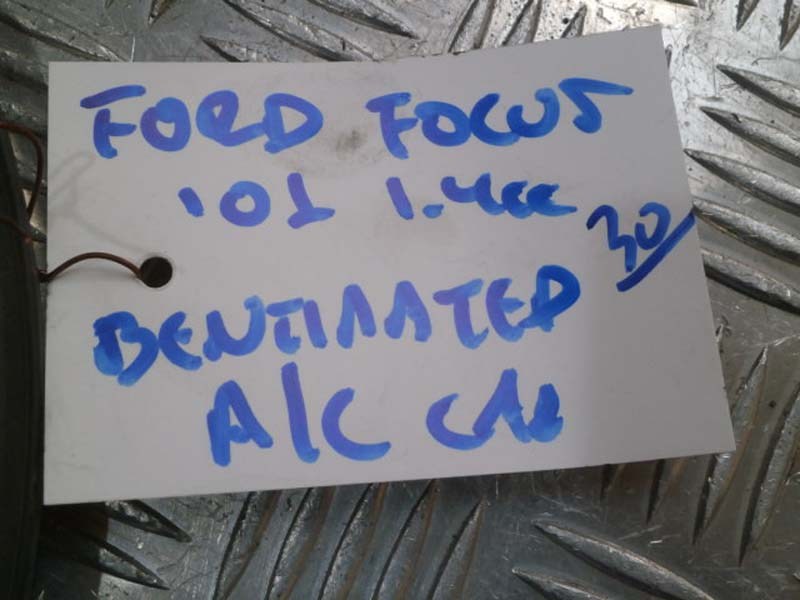 FORD FOCUS
'01 1.4cc
30
BENTIΛΑTEΡ
A/C CΛΒ